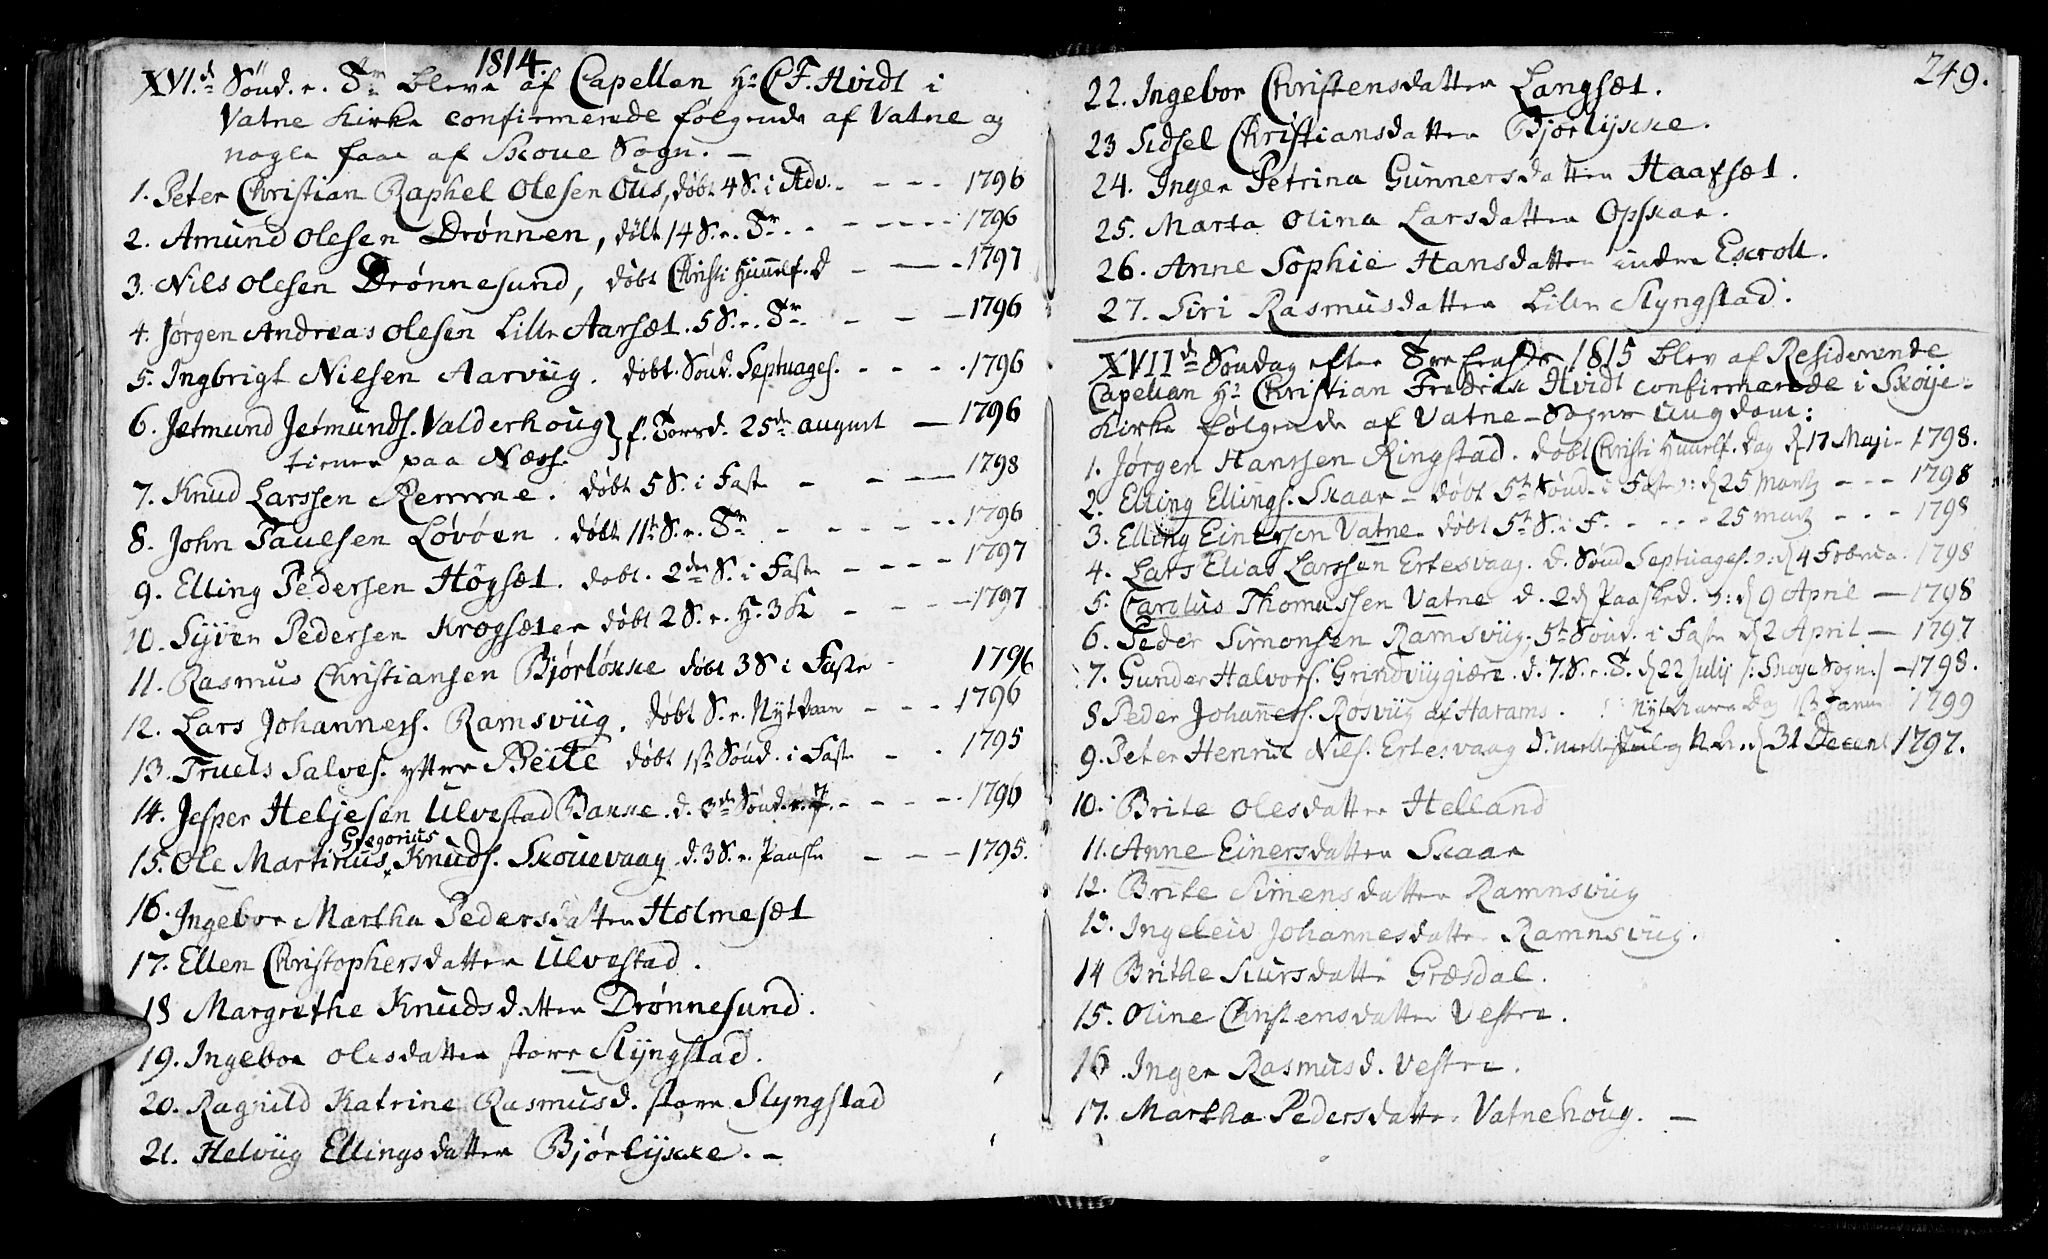 1814.
XVI.de Sönd. e. Tr. blev af Capellan Hr. C. F. Hvidt i
Vatne Kirke confirmerede følgende af Vatne og
nogle faae af Skoue Sogn. –
1. Peter Christian Raphel Olesen Ous, døbt 4 S. i Adv. – – – – 1796
2. Amund Olesen Drønnen, døbt 14 S. e. Tr. – – – – – 1796
3. Nils Olesen Drønnesund, døbt Christi Himelf. D – – – 1797
4. Jørgen Andreas Olesen Lille Aarsæt. 5 S. e. Tr. – – – 1796
5. Ingbrigt Nielsen Aarviig. døbt. Sønd. Septuages. – – – – 1796
6. Jetmund Jetmunds. Valderhoug f. Torsd. 25de august – 1796
tiener paa Næss.
7. Knud Larssen Remme. døbt 5 S. i Faste – – – 1798
8. John Paulsen Løvøen. døbt 11te S. e. Tr. – – – – – 1796
9. Elling Pedersen Högsæt. døbt. 2den S. i Faste – – – – 1797
10. Syver Pedersen Krogsæter døbt 2 S. e. H. 3 K – – – 1797
11. Rasmus Christiansen Bjørløkke døbt 3 S i Faste – 1796
12. Lars Johanness. Ramsviig. døbt S. e. Nytaar – – – 1796
13. Truels Salves. yttre Beite døbt 1ste Sönd. i Faste – . 1795
14. Jesper Heljesen Ulvestad Banne. d. 3de Sönd. e. – – – – 1796
15. Ole Martinus Gregorius Knuds. Skouevaag d. 3 S. e. Paaske – – – 1795.
16. Ingebor Martha Pedersdatter Holmesæt
17. Ellen Christophersdatter Ulvestad.
18 Margrethe Knudsdatter Drønnesund.
19. Ingebor Olesdatter store Slyngstad.
20. Ragnild Katrine Rasmusd. store Slyngstad
21. Helviig Ellingsdatter Bjørlykke. –
249.
22. Ingebor Christensdatter Langsæt.
23 Sidsel Christiansdatter Bjørlykke.
24. Inger Petrina Gunnersdatter Haafsæt.
25. Marta Olina Larsdatter Opskar.
26. Anne Sophie Hansdatter indre Exroll.
27. Siri Rasmusdatter Lille Slyngstad.
XVIIde Søndag efter 1815 blev af Residerende
Capellan Hr. Christian Fredrik Hvidt confirmerede i Skøye-
Kirke følgende af Vatne-Sogns Ungdom:
1. Jørgen Hanssen Ringstad. døbt Christi Himelf. Dag d 17 Maji – 1798.
2. Elling Ellings. Skaar – døbt 5te Sönd. i Faste d 25 Martz – – – 1798
3. Elling Einersen Vatne. døbt 5te S. i F. – – – – 25 Martz – – – 1798
4. Lars Elias Larssen Ertesvaag. d. Sönd Septuages. d 4 Februa. 1798
5. Carolus Thomassen Vatne d. 2d Paasked. d 9 April – 1798
6. Peder Simonsen Ramsviig. 5te Sönd. i Faste d 2 April – 1797
7. Gunder Halvors. Grindviiggiære. d. 7. S. e. T. d 22 Julij /: Skoye Sogn :/ – 1798.
8 Peder Johanness. Røsviig af Harams. Nytaars Dag Janu 1799
9. Peter Henric Niels. Ertesvaag d 31 Decemb 1797.
10. Brite Olesdatter Helland
11. Anne Einersdatter Skaar
12. Brite Simensdatter Ramnsviig
13. Ingeleiv Johannesdatter Ramnsviig.
14 Brithe Siursdatte Græsdal.
15. Oline Christensdatter Vestre.
16. Inger Rasmusd. Vestre.
17. Martha Pedersdatter Vatnehoug. –